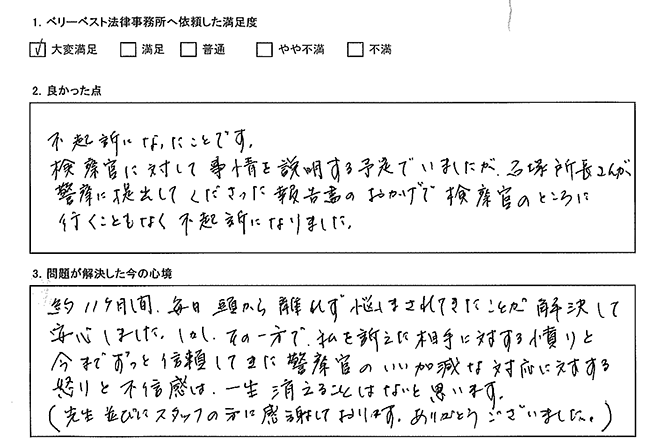 1. ベリーベスト法律事務所へ依頼した満足度
☑ 大変満足 □ 満足 □ 普通 □ やや不満 □ 不満
2. 良かった点
不起訴になったことです。
検察官に対して事情を説明する予定でいましたが、石塚所長さんが
警察に提出してくださった報告書のおかげで検察官のところに
行くこともなく不起訴になりました。
3. 問題が解決した今の心境
約11ケ月間、毎日頭から離れず悩まされてきたことが解決して
安心しました。しかし、その一方で、私を訴えた相手に対する憤りと
今までずっと信頼してきた警察官のいい加減な対応に対する
怒りと不信感は、一生消えることはないと思います。
(先生並びにスタッフの方に感謝しております。ありがとうございました。)